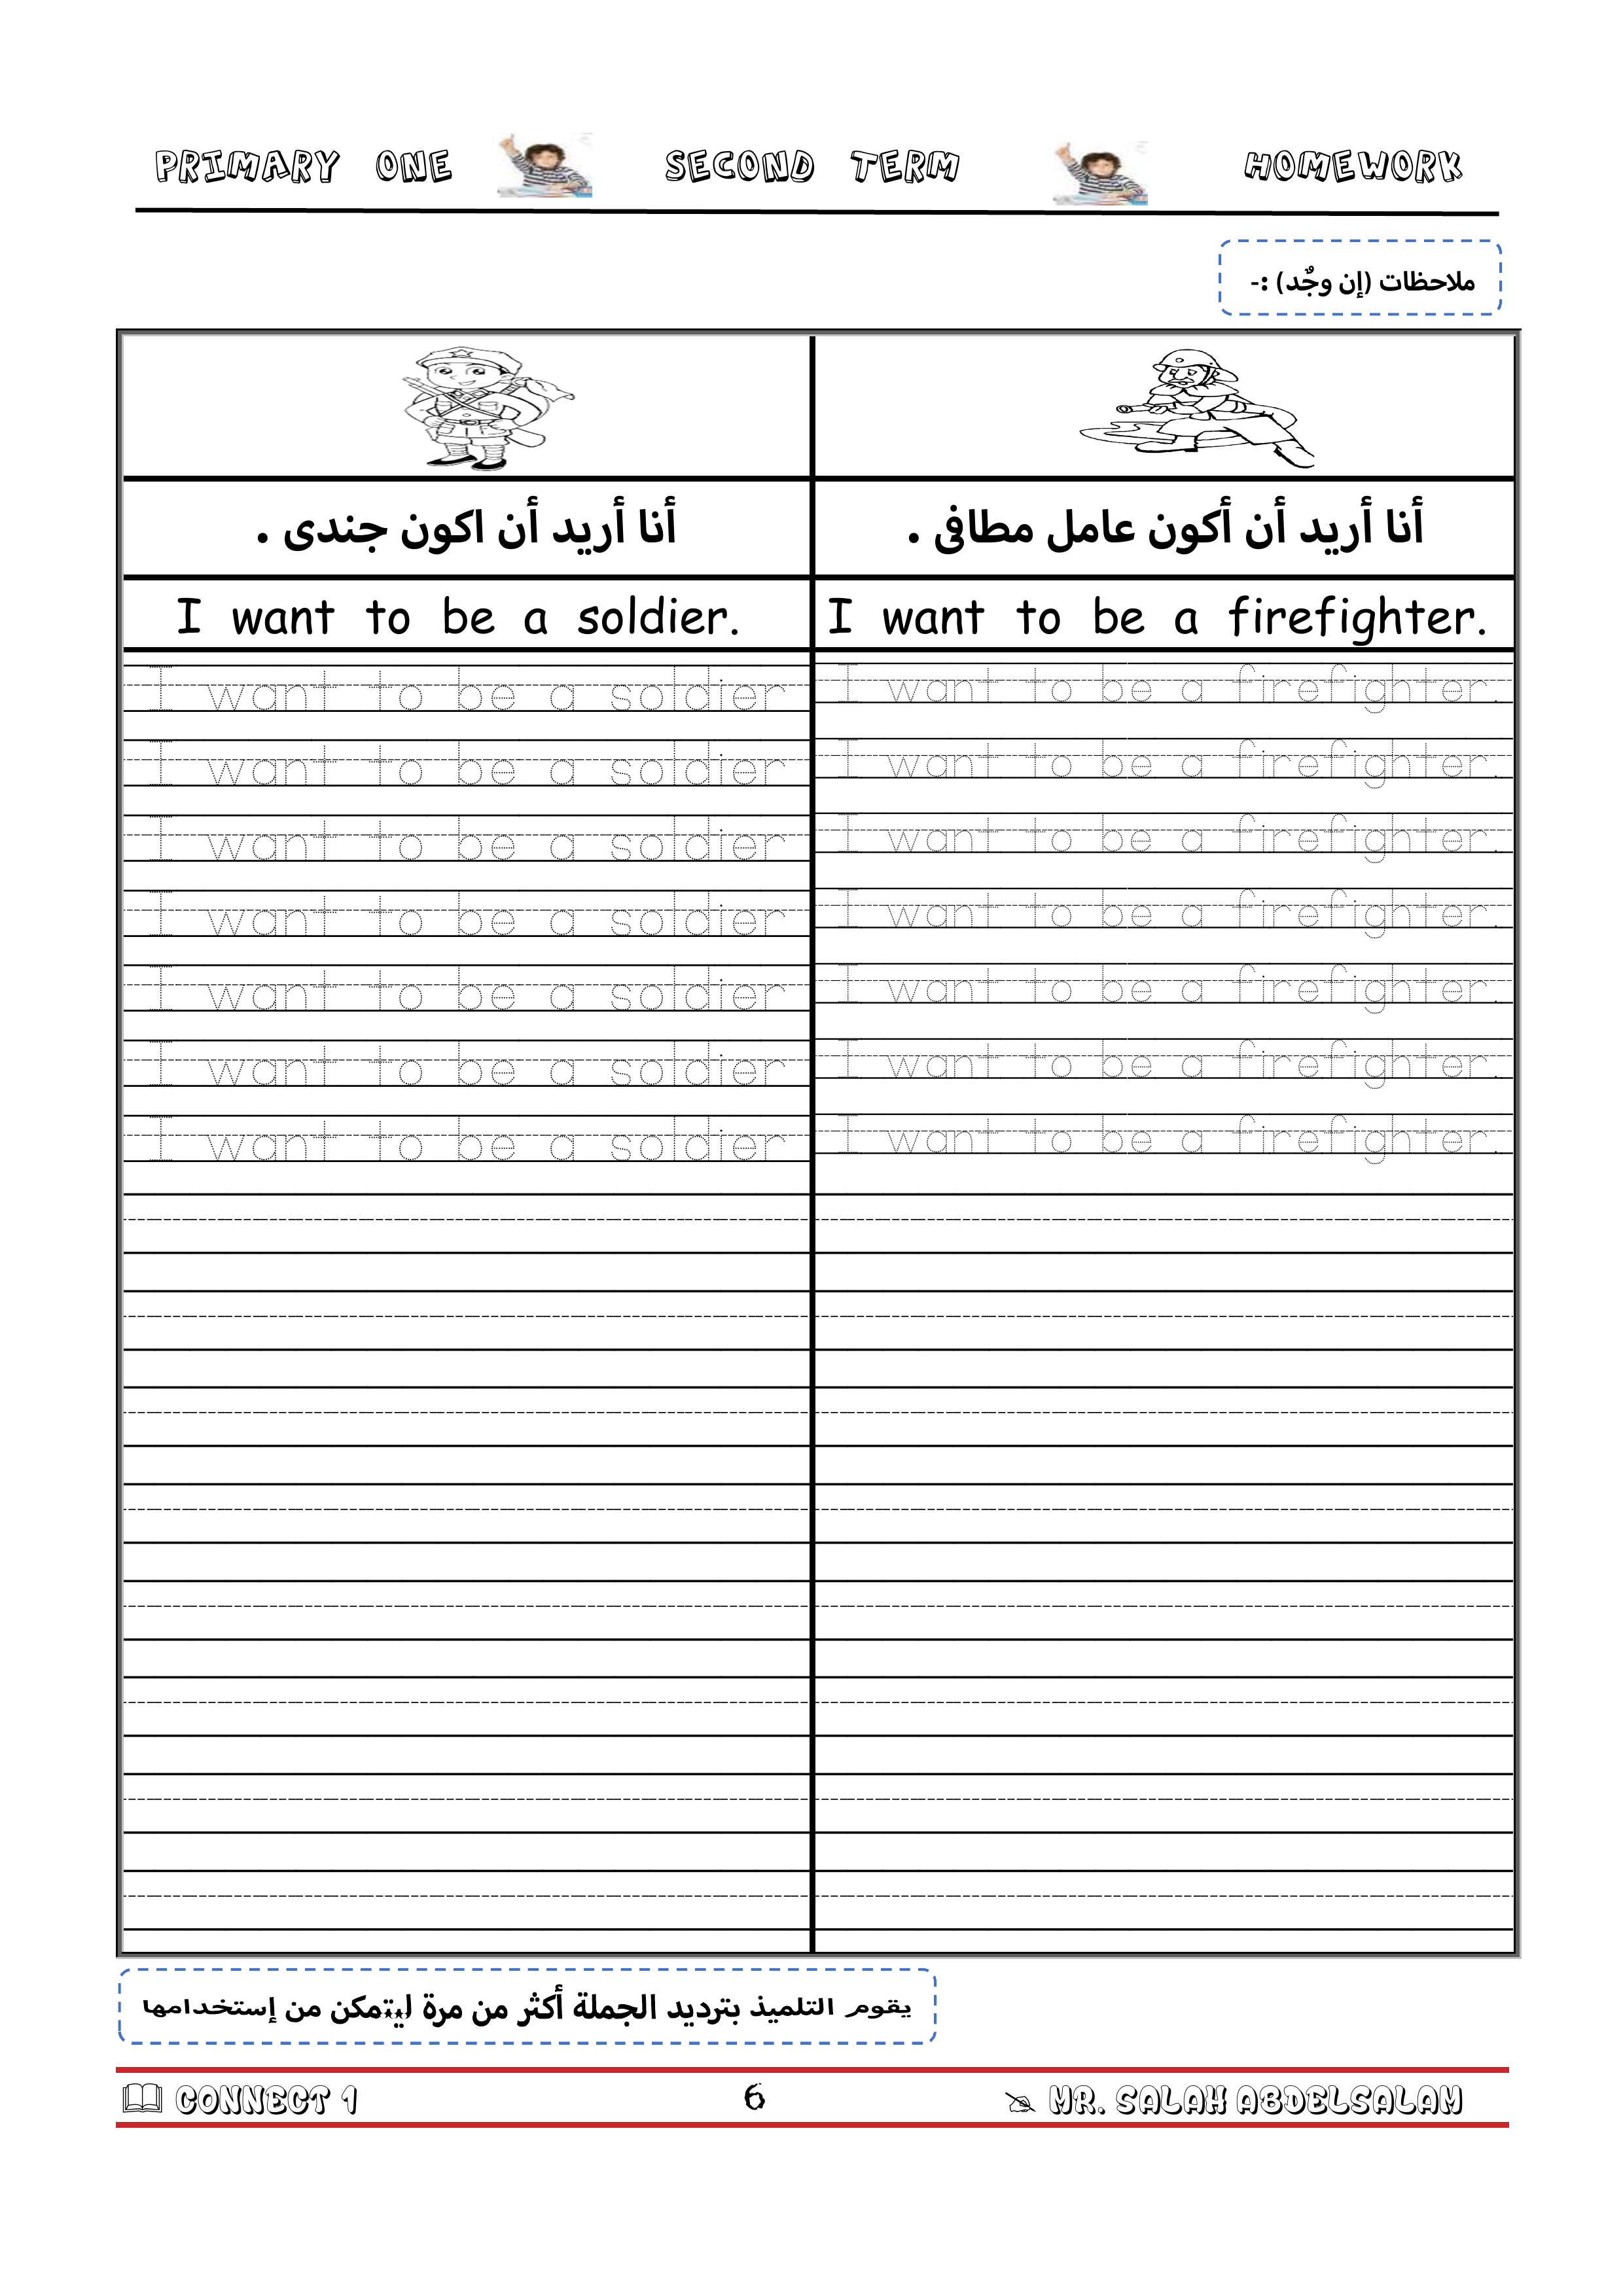 PRIMARY ONE SECOND TERM HOMEWORK
ملاحظات (إن وجٌد) :-
أنا أريد أن اكون جندى .
أنا أريد أن أكون عامل مطافى .
I want to be a soldier.
I want to be a firefighter.
I want to be a soldier
I want to be a firefighter.
I want to be a soldier
I want to be a firefighter.
I want to be a soldier
I want to be a firefighter.
I want to be a soldier
I want to be a firefighter.
I want to be a soldier
I want to be a firefighter.
I want to be a soldier
I want to be a firefighter.
I want to be a soldier
I want to be a firefighter.
يقوم التلميذ بترديد الجملة أكثر من مرة ليتمكن من إستخدامها
CONNECT 1 6 MR. SALAH ABDELSALAM